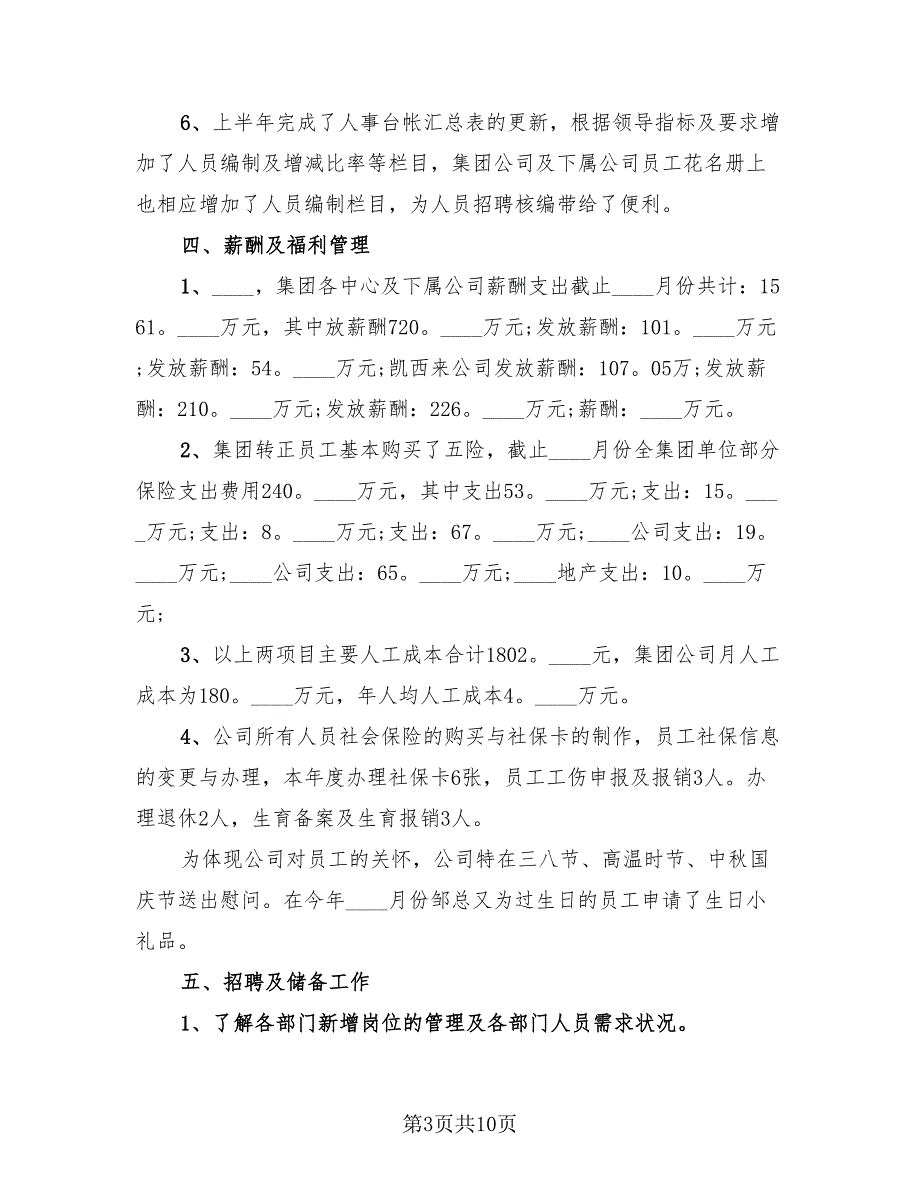 6、上半年完成了人事台帐汇总表的更新，根据领导指标及要求增
加了人员编制及增减比率等栏目，集团公司及下属公司员工花名册上
也相应增加了人员编制栏目，为人员招聘核编带给了便利。
四、薪酬及福利管理
1、____，集团各中心及下属公司薪酬支出截止____月份共计：15
61。____万元，其中放薪酬720。____万元;发放薪酬：101。____万元
;发放薪酬：54。____万元;凯西来公司发放薪酬：107。05万;发放薪
酬：210。____万元;发放薪酬：226。____万元;薪酬：____万元。
2、集团转正员工基本购买了五险，截止____月份全集团单位部分
保险支出费用240。____万元，其中支出53。____万元;支出：15。___
_万元;支出：8。____万元;支出：67。____万元;____公司支出：19。
____万元;____公司支出：65。____万元;____地产支出：10。____万
元;
3、以上两项目主要人工成本合计1802。____元，集团公司月人工
成本为180。____万元，年人均人工成本4。____万元。
4、公司所有人员社会保险的购买与社保卡的制作，员工社保信息
的变更与办理，本年度办理社保卡6张，员工工伤申报及报销3人。办
理退休2人，生育备案及生育报销3人。
为体现公司对员工的关怀，公司特在三八节、高温时节、中秋国
庆节送出慰问。在今年____月份邹总又为过生日的员工申请了生日小
礼品。
五、招聘及储备工作
1、了解各部门新增岗位的管理及各部门人员需求状况。
第3页共10页